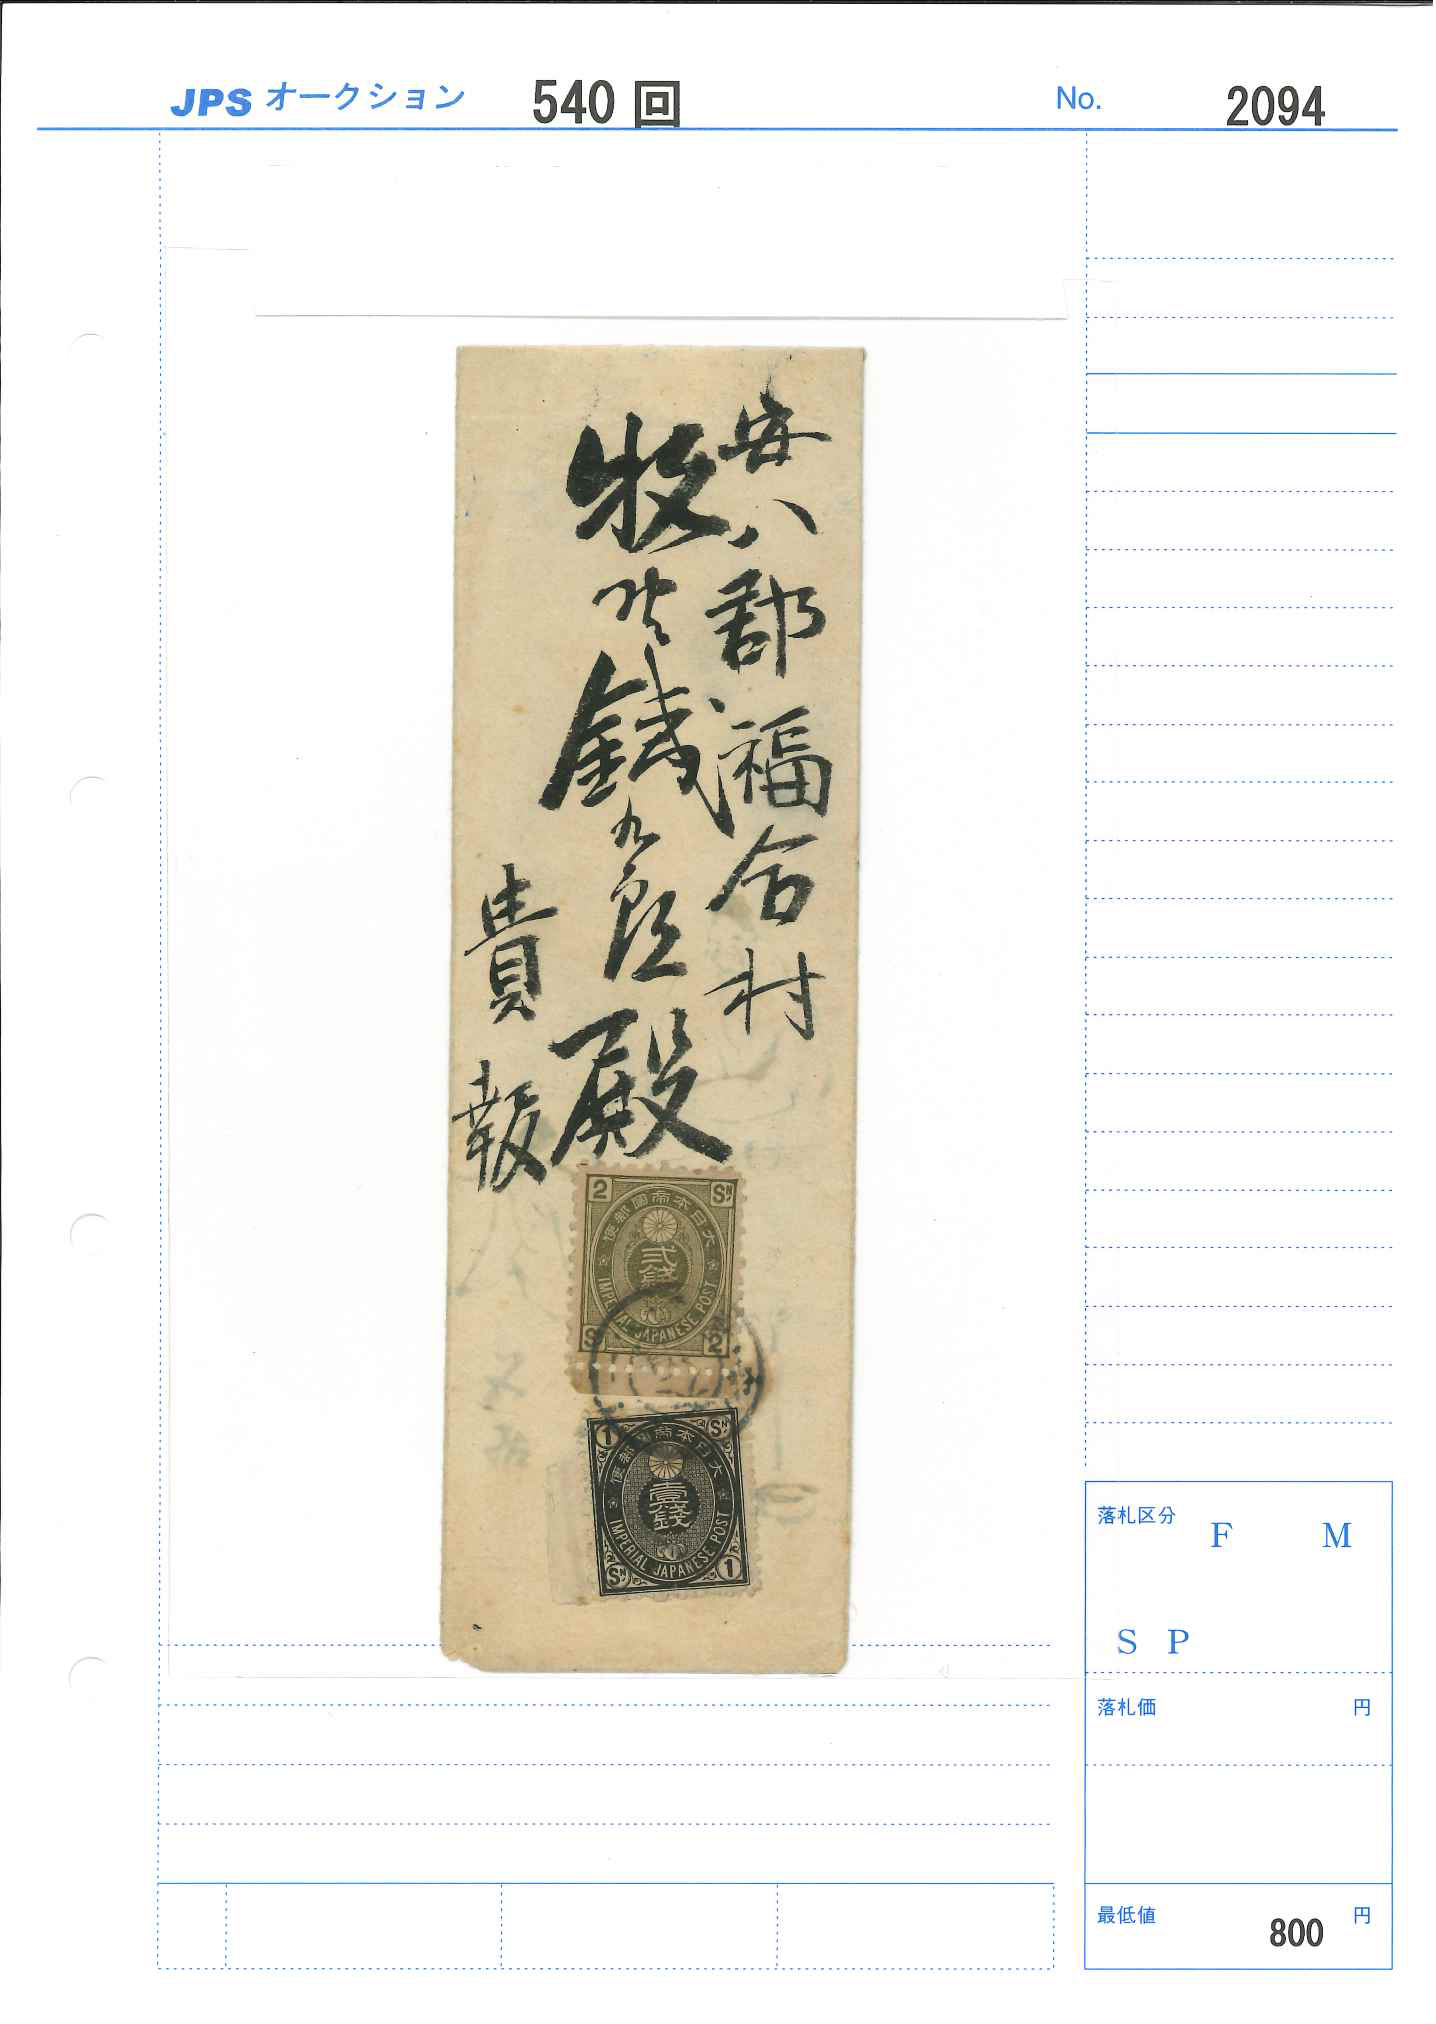 JPS オークション 540 回 No. 2094
安八郡福舎村
牧野錢九郎殿
貴報
2 SN
大日本帝國郵便
貳錢
IMPERIAL JAPANESE POST
S 2
1 SN
大日本帝國郵便
壹錢
IMPERIAL JAPANESE POST
SN 1
落札区分 F M
S P
落札価 円
最低値 800 円